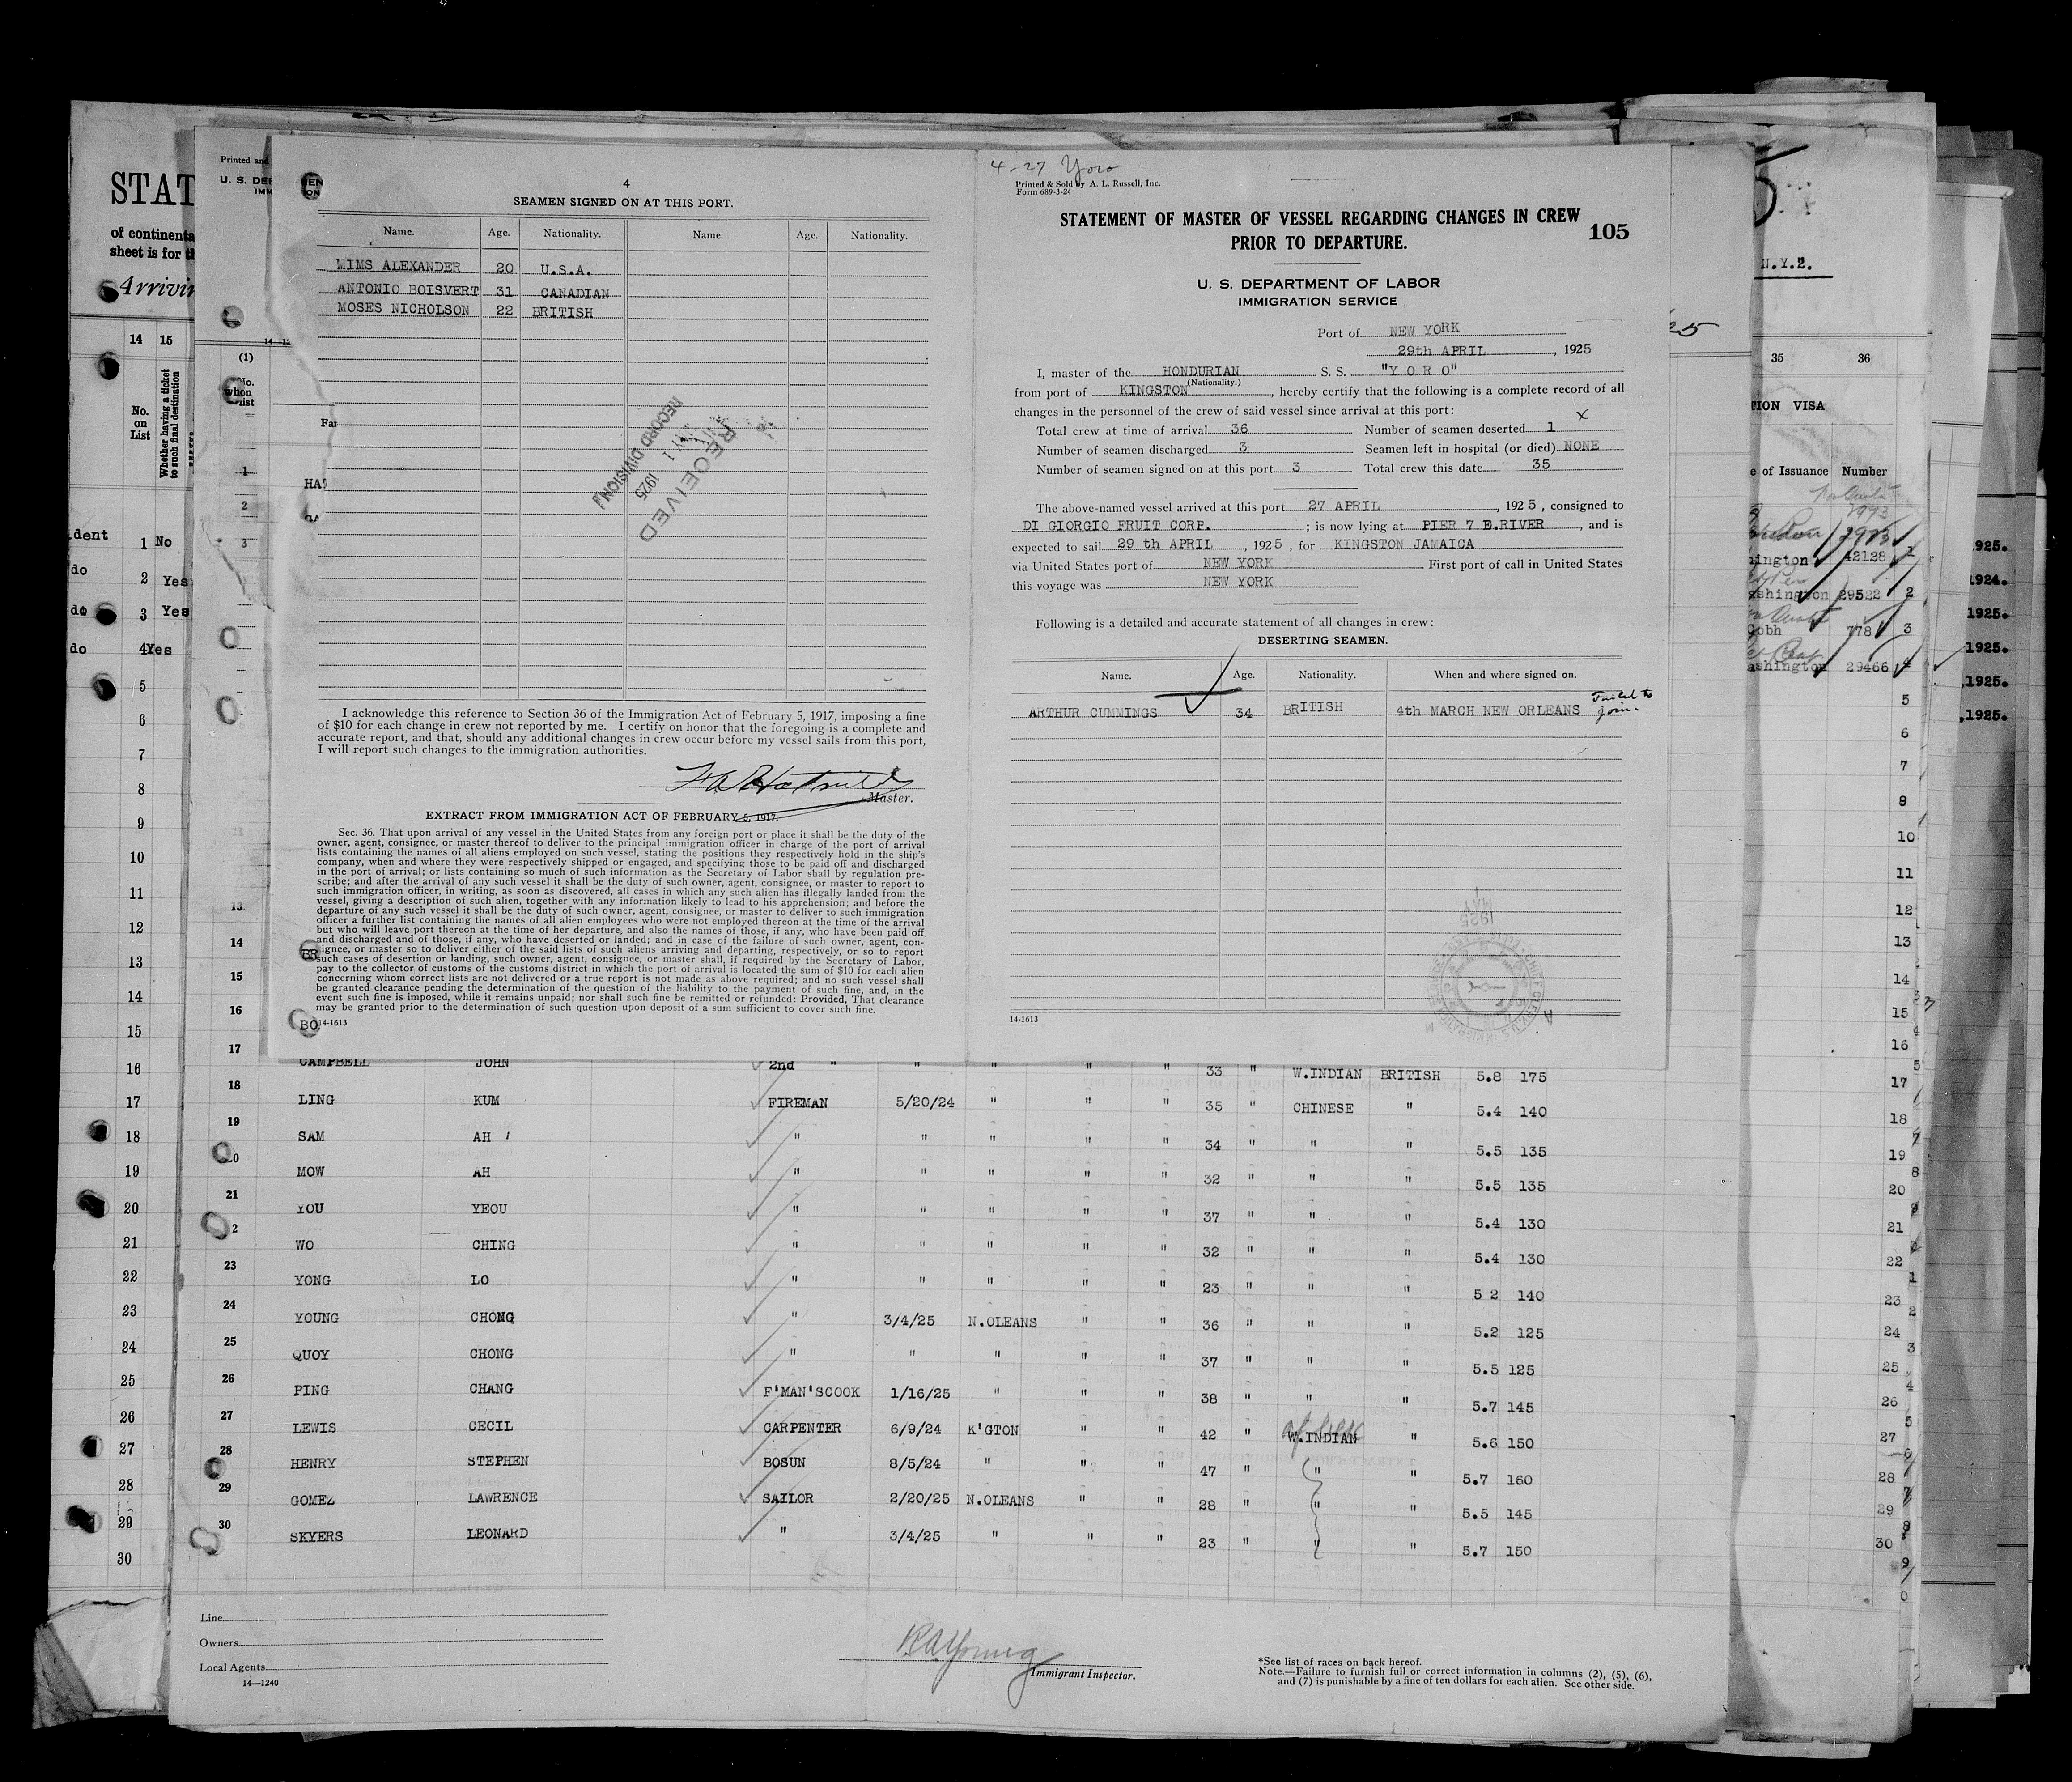 4
SEAMEN SIGNED ON AT THIS PORT.
Name. Age. Nationality. Name. Age. Nationality.
MIMS ALEXANDER 20 U.S.A.
ANTONIO BOISVERT 31 CANADIAN
MOSES NICHOLSON 22 BRITISH
RECEIVED
1925
RECORD DIVISION
I acknowledge this reference to Section 36 of the Immigration Act of February 5, 1917, imposing a fine
of $10 for each change in crew not reported by me. I certify on honor that the foregoing is a complete and
accurate report, and that, should any additional changes in crew occur before my vessel sails from this port,
I will report such changes to the immigration authorities.
Master.
EXTRACT FROM IMMIGRATION ACT OF FEBRUARY 5, 1917.
Sec. 36. That upon arrival of any vessel in the United States from any foreign port or place it shall be the duty of the
owner, agent, consignee, or master thereof to deliver to the principal immigration officer in charge of the port of arrival
lists containing the names of all aliens employed on such vessel, stating the positions they respectively hold in the ship's
company, when and where they were respectively shipped or engaged, and specifying those to be paid off and discharged
in the port of arrival; or lists containing so much of such information as the Secretary of Labor shall by regulation pre-
scribe; and after the arrival of any such vessel it shall be the duty of such owner, agent, consignee, or master to report to
such immigration officer, in writing, as soon as discovered, all cases in which any such alien has illegally landed from the
vessel, giving a description of such alien, together with any information likely to lead to his apprehension; and before the
departure of any such vessel it shall be the duty of such owner, agent, consignee, or master to deliver to such immigration
officer a further list containing the names of all alien employees who were not employed thereon at the time of the arrival
but who will leave port thereon at the time of her departure, and also the names of those, if any, who have been paid off
and discharged and of those, if any, who have deserted or landed; and in case of the failure of such owner, agent, con-
signee, or master so to deliver either of the said lists of such aliens arriving and departing, respectively, or so to report
such cases of desertion or landing, such owner, agent, consignee, or master shall, if required by the Secretary of Labor,
pay to the collector of customs of the customs district in which the port of arrival is located the sum of $10 for each alien
concerning whom correct lists are not delivered or a true report is not made as above required; and no such vessel shall
be granted clearance pending the determination of the question of the liability to the payment of such fine, and, in the
event such fine is imposed, while it remains unpaid; nor shall such fine be remitted or refunded: Provided, That clearance
may be granted prior to the determination of such question upon deposit of a sum sufficient to cover such fine.
14-1613
4-27 Yoro
Printed & Sold by A. L. Russell, Inc.
Form 689-3-24
STATEMENT OF MASTER OF VESSEL REGARDING CHANGES IN CREW
PRIOR TO DEPARTURE.
105
U. S. DEPARTMENT OF LABOR
IMMIGRATION SERVICE
Port of NEW YORK
29th APRIL, 1925
I, master of the HONDURIAN S. S. "Y O R O"
(Nationality.)
from port of KINGSTON, hereby certify that the following is a complete record of all
changes in the personnel of the crew of said vessel since arrival at this port: x
Total crew at time of arrival 36 Number of seamen deserted 1
Number of seamen discharged 3 Seamen left in hospital (or died) NONE
Number of seamen signed on at this port 3 Total crew this date 35
The above-named vessel arrived at this port 27 APRIL, 1925, consigned to
DI GIORGIO FRUIT CORP.; is now lying at PIER 7 E.RIVER, and is
expected to sail 29 th APRIL, 1925, for KINGSTON JAMAICA
via United States port of NEW YORK First port of call in United States
this voyage was NEW YORK
Following is a detailed and accurate statement of all changes in crew:
DESERTING SEAMEN.
Name. Age. Nationality. When and where signed on.
ARTHUR CUMMINGS 34 BRITISH 4th MARCH NEW ORLEANS Failed to join.
MAY
1925
14-1613
STAT
of continenta
sheet is for t
Arrivin
14 15
No. on List
Whether having a ticket to such final destination
dent 1 No
do 2 Yes
do 3 Yes
do 4Yes
5
6
7
8
9
10
11
12
13
14
15
16
17
18
19
20
21
22
23
24
25
26
27
28
29
30
Printed and
U. S. DEP
IMM
(1)
No.
1
2
3
13
14
15
16
17 CAMPBELL JOHN 2nd " " " " " 33 " W.INDIAN BRITISH 5.8 175
18 LING KUM FIREMAN 5/20/24 " " " 35 " CHINESE " 5.4 140
19 SAM AH " " " " " 34 " " " 5.5 135
20 MOW AH " " " " " 32 " " " 5.5 135
21 YOU YEOU " " " " " 37 " " " 5.4 130
22 WO CHING " " " " " 32 " " " 5.4 130
23 YONG LO " " " " " 23 " " " 5 2 140
24 YOUNG CHONG " 3/4/25 N.OLEANS " " 36 " " " 5.2 125
25 QUOY CHONG " " " " " 37 " " " 5.5 125
26 PING CHANG F'MAN'SCOOK 1/16/25 " " " 38 " " " 5.7 145
27 LEWIS CECIL CARPENTER 6/9/24 K'GTON " " 42 " W.INDIAN " 5.6 150
28 HENRY STEPHEN BOSUN 8/5/24 " " " 47 " " " 5.7 160
29 GOMEZ LAWRENCE SAILOR 2/20/25 N.OLEANS " " 28 " " " 5.5 145
30 SKYERS LEONARD " 3/4/25 " " " 23 " " " 5.7 150
Line
Owners
Local Agents
14—1240
R A Young
Immigrant Inspector.
*See list of races on back hereof.
Note.—Failure to furnish full or correct information in columns (2), (5), (6),
and (7) is punishable by a fine of ten dollars for each alien. See other side.
N.Y.2.
35 36
TION VISA
e of Issuance Number
ington 42128 1
ashington 29522 2
Cobh 778 3
ashington 29466 4
5
6
7
8
9
10
11
12
13
14
15
16
17
18
19
20
21
22
23
24
25
26
27
28
29
30
1925.
1924.
1925.
1925.
,1925.
,1925.